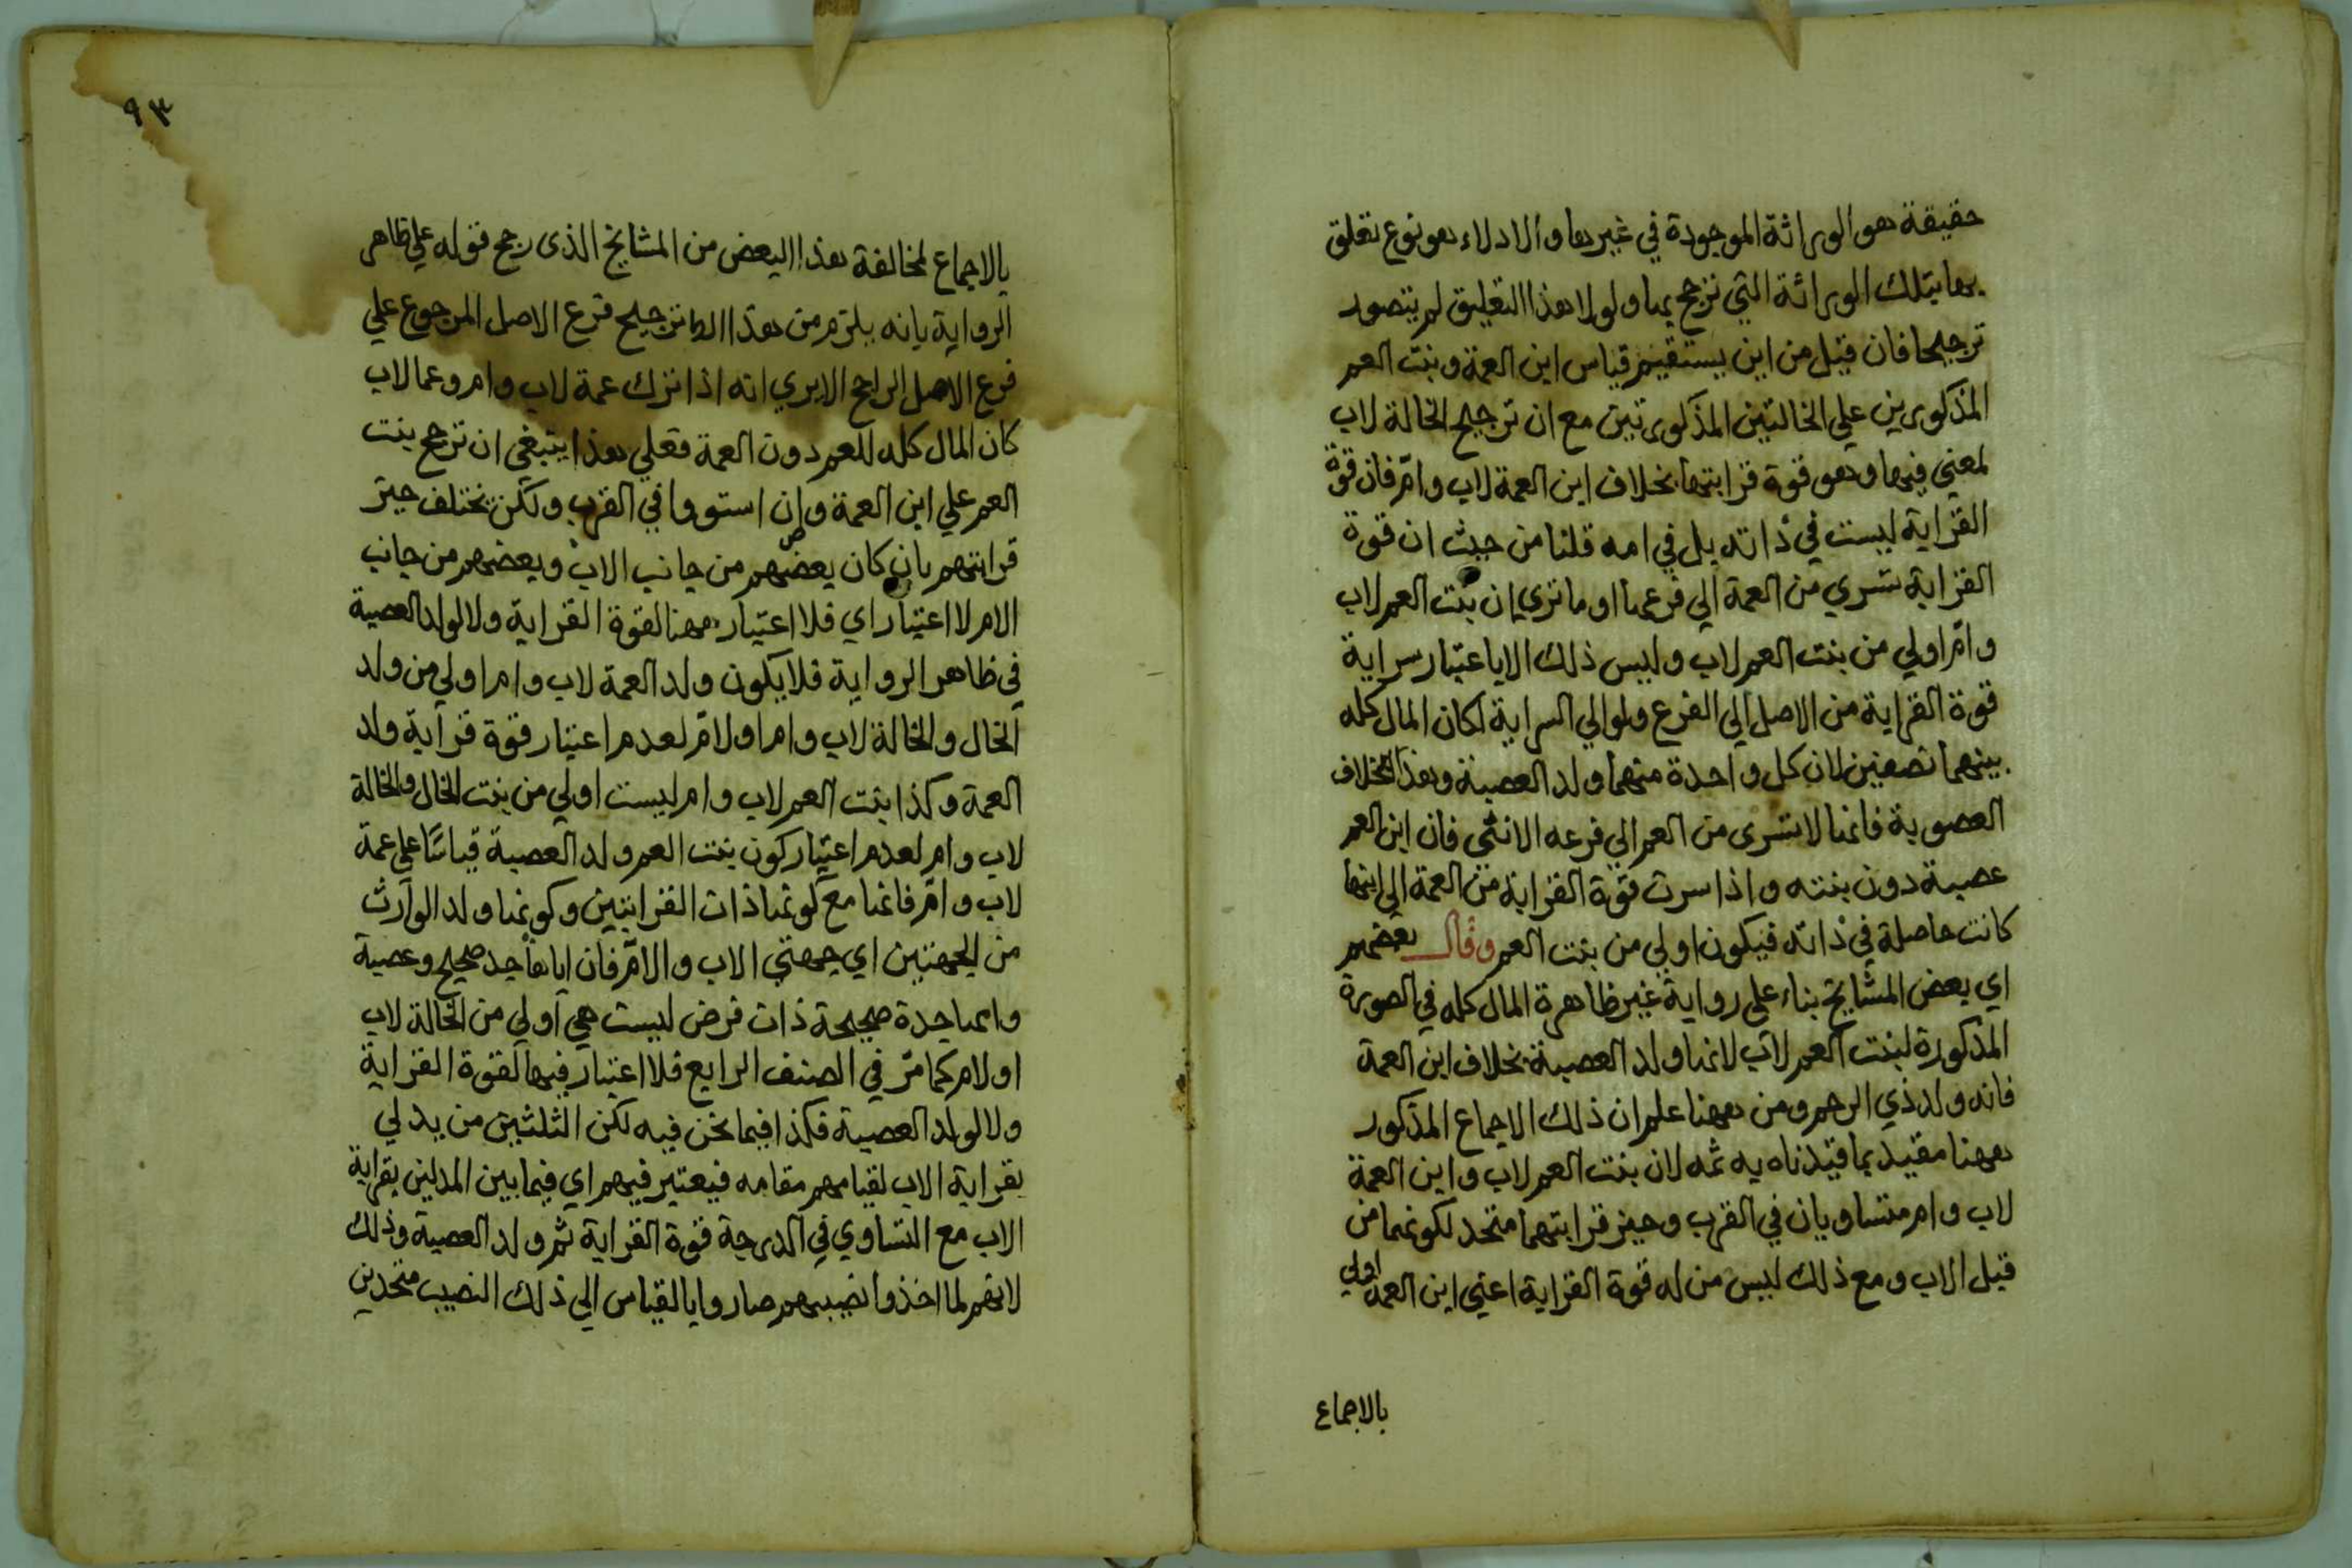 حقيقة هو الوراثة الموجودة في غيرها والادلاء هو نوع تعلق
بها بتلك الوراثة التي ترجح بها ولولا هذا التعليق لم يتصور
ترجيحا فان قيل من اين يستقيم قياس ابن العمة وبنت العم
المذكورين علي الخالتين المذكورتين مع ان ترجيح الخالة لاب
لمعني فيها وهو قوة قرابتها بخلاف ابن العمة لاب وام فان قوة
القرابة ليست في ذاته بل في امه قلنا من حيث ان قوة
القرابة تسري من العمة الي فرعها او ما تري ان بنت العم لاب
وام اولي من بنت العم لاب وليس ذلك الا باعتبار سراية
قوة القرابة من الاصل الي الفرع ولوا لي السراية لكان المال كله
بينهما نصفين لان كل واحدة منهما ولد العصبة وهذا بخلاف
العصوبة فانها لا تسرى من العم الي فرعه الانثي فان ابن العم
عصبة دون بنته واذا سرت قوة القرابة من العمة الي ابنها
كانت حاصلة في ذاته فيكون اولي من بنت العم وقال بعضهم
اي بعض المشايخ بناء علي رواية غير ظاهرة المال كله في الصورة
المذكورة لبنت العم لاب لانها ولد العصبة بخلاف ابن العمة
فانه ولد ذي الرحم ومن ههنا علم ان ذلك الاجماع المذكور
ههنا مقيد بما قيدناه به ثمه لان بنت العم لاب وابن العمة
لاب وام متساويان في القرب وحيز قرابتهما متحد لكونهما من
قبل الاب ومع ذلك ليس من له قوة القرابة اعني ابن العمة اولي
بالاجماع
٩٣
بالاجماع لمخالفة هذا البعض من المشايخ الذى رجح قوله علي ظاهر
الرواية بانه يلزم من هذا ترجيح فرع الاصل المرجوع علي
فرع الاصل الراجح الا يري انه اذا ترك عمة لاب وام وعما لاب
كان المال كله للعم دون العمة فعلي هذا ينبغي ان ترجح بنت
العم علي ابن العمة وان استووا في القرب ولكن يختلف حيز
قرابتهم بان كان بعضهم من جانب الاب وبعضهم من جانب
الام لا اعتبار اي فلا اعتبار ههنا لقوة القرابة ولا لولد العصبة
في ظاهر الرواية فلا يكون ولد العمة لاب وام اولي من ولد
الخال والخالة لاب وام او لام لعدم اعتبار قوة قرابة ولد
العمة وكذا بنت العم لاب وام ليست اولي من بنت الخال والخالة
لاب وام لعدم اعتبار كون بنت العم ولد العصبة قياسًا علي عمة
لاب وام فانها مع كونها ذات القرابتين وكونها ولد الوارث
من الجهتين اي جهتي الاب والام فان اباها جد صحيح وعصبة
وامها جدة صحيحة ذات فرض ليست هي اولي من الخالة لاب
او لام كما مر في الصنف الرابع فلا اعتبار فيها لقوة القرابة
ولا لولد العصبة فكذا فيما نحن فيه لكن الثلثين من يدلي
بقرابة الاب لقيامهم مقامه فيعتبر فيهم اي فيما بين المدلين بقرابة
الاب مع التساوي في الدرجة قوة القرابة ثم ولد العصبة وذلك
لانهم لما اخذوا نصيبهم صاروا بالقياس الي ذلك النصيب متحدين